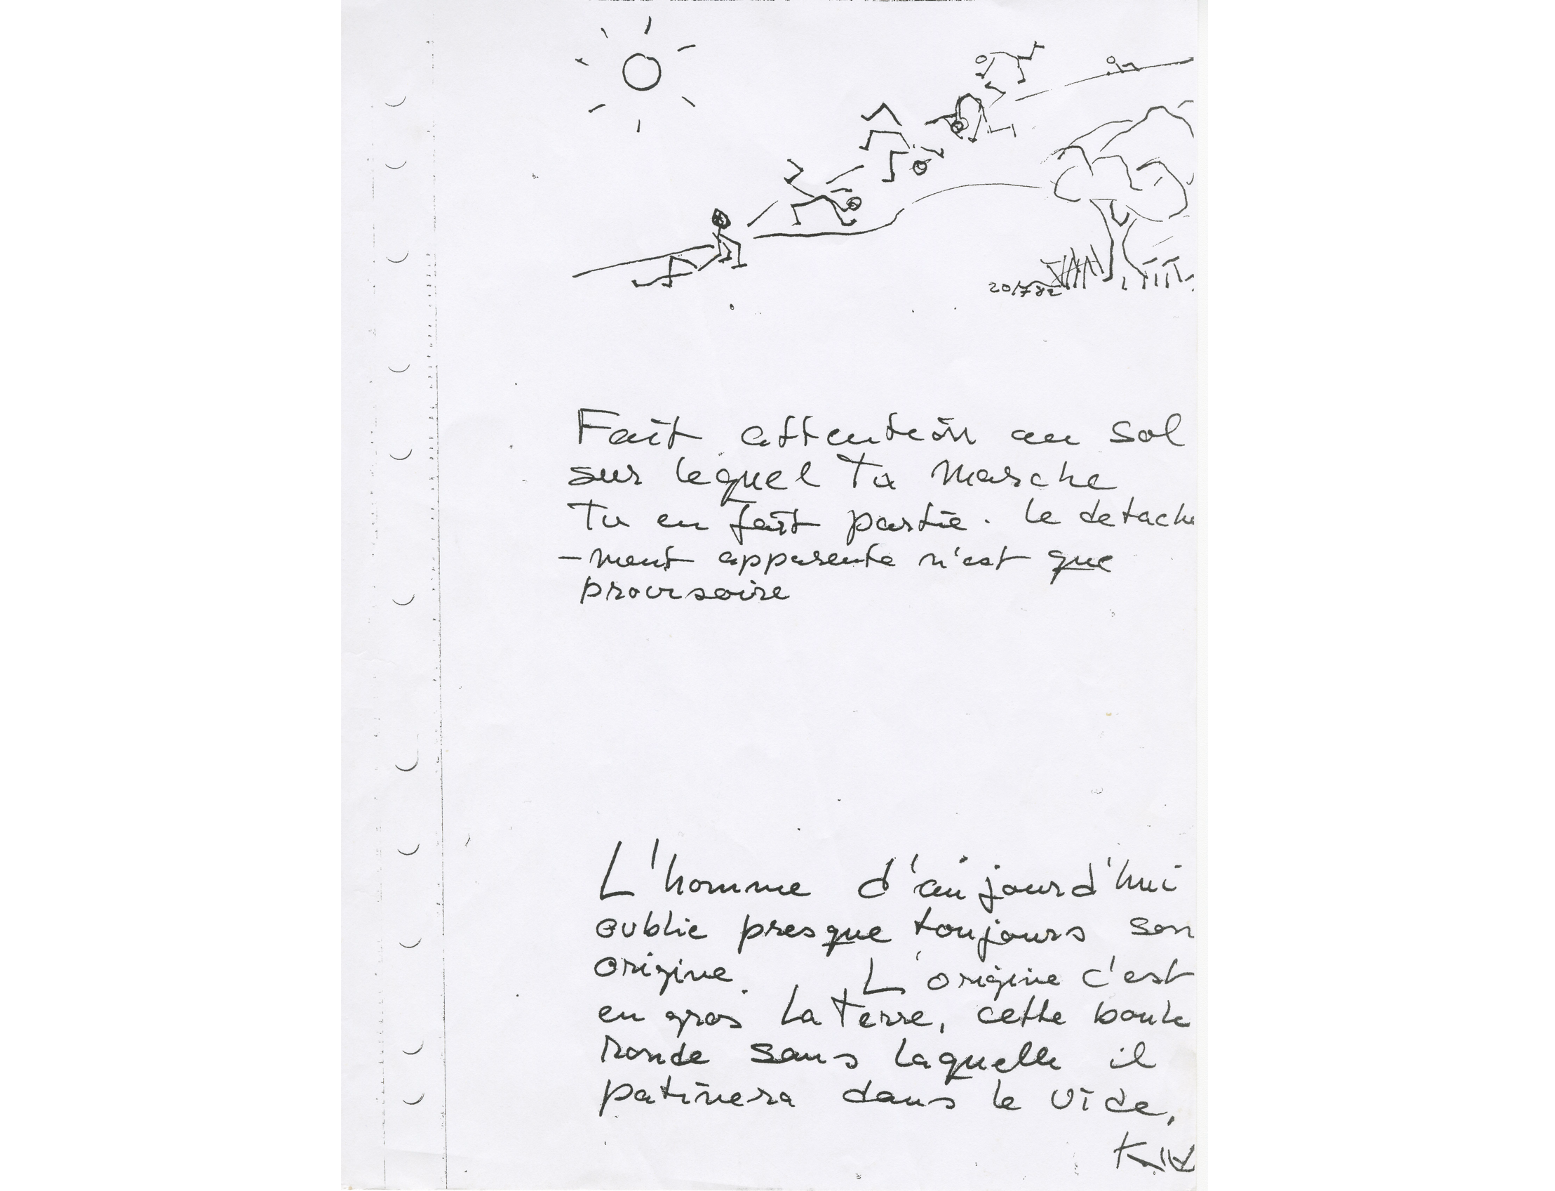 20/7 82
Fait attention au sol
sur lequel Tu marche
Tu en fait partie. Le detache
-ment apparente n'est que
provisoire
L'homme d'aujourd'hui
oublie presque toujours son
origine. L'origine c'est
en gros La Terre, cette boule
ronde sans laquelle il
patinera dans le vide,